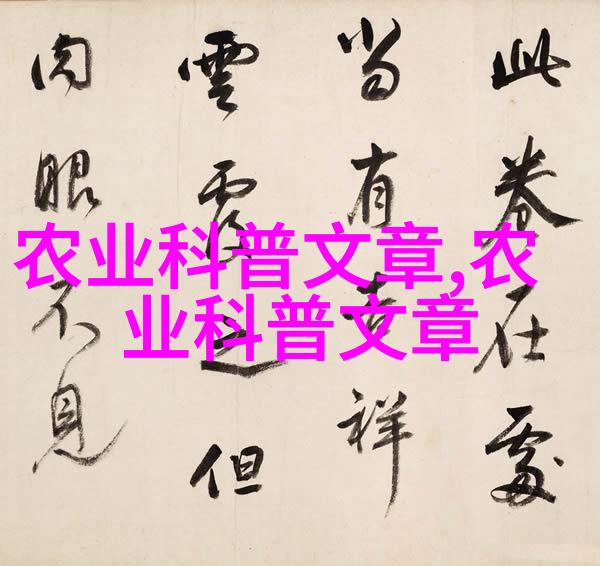 此卷在處
当有吉祥
雲覆之但
肉眼不見
农业科普文章,农
业科普文章